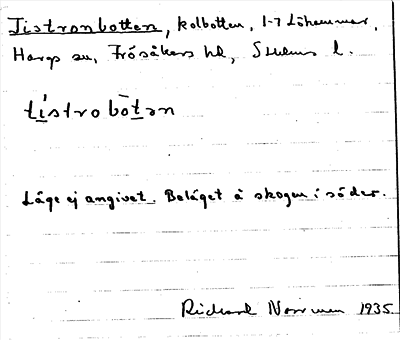 Tistronbotten, kolbotten, 1-7 Löhammar,
Hargs sn, Frösåkers hd, Sthlms l.
tistrobotən
Läge ej angivet. Beläget å skogen i söder.
Richard Norrman 1935.